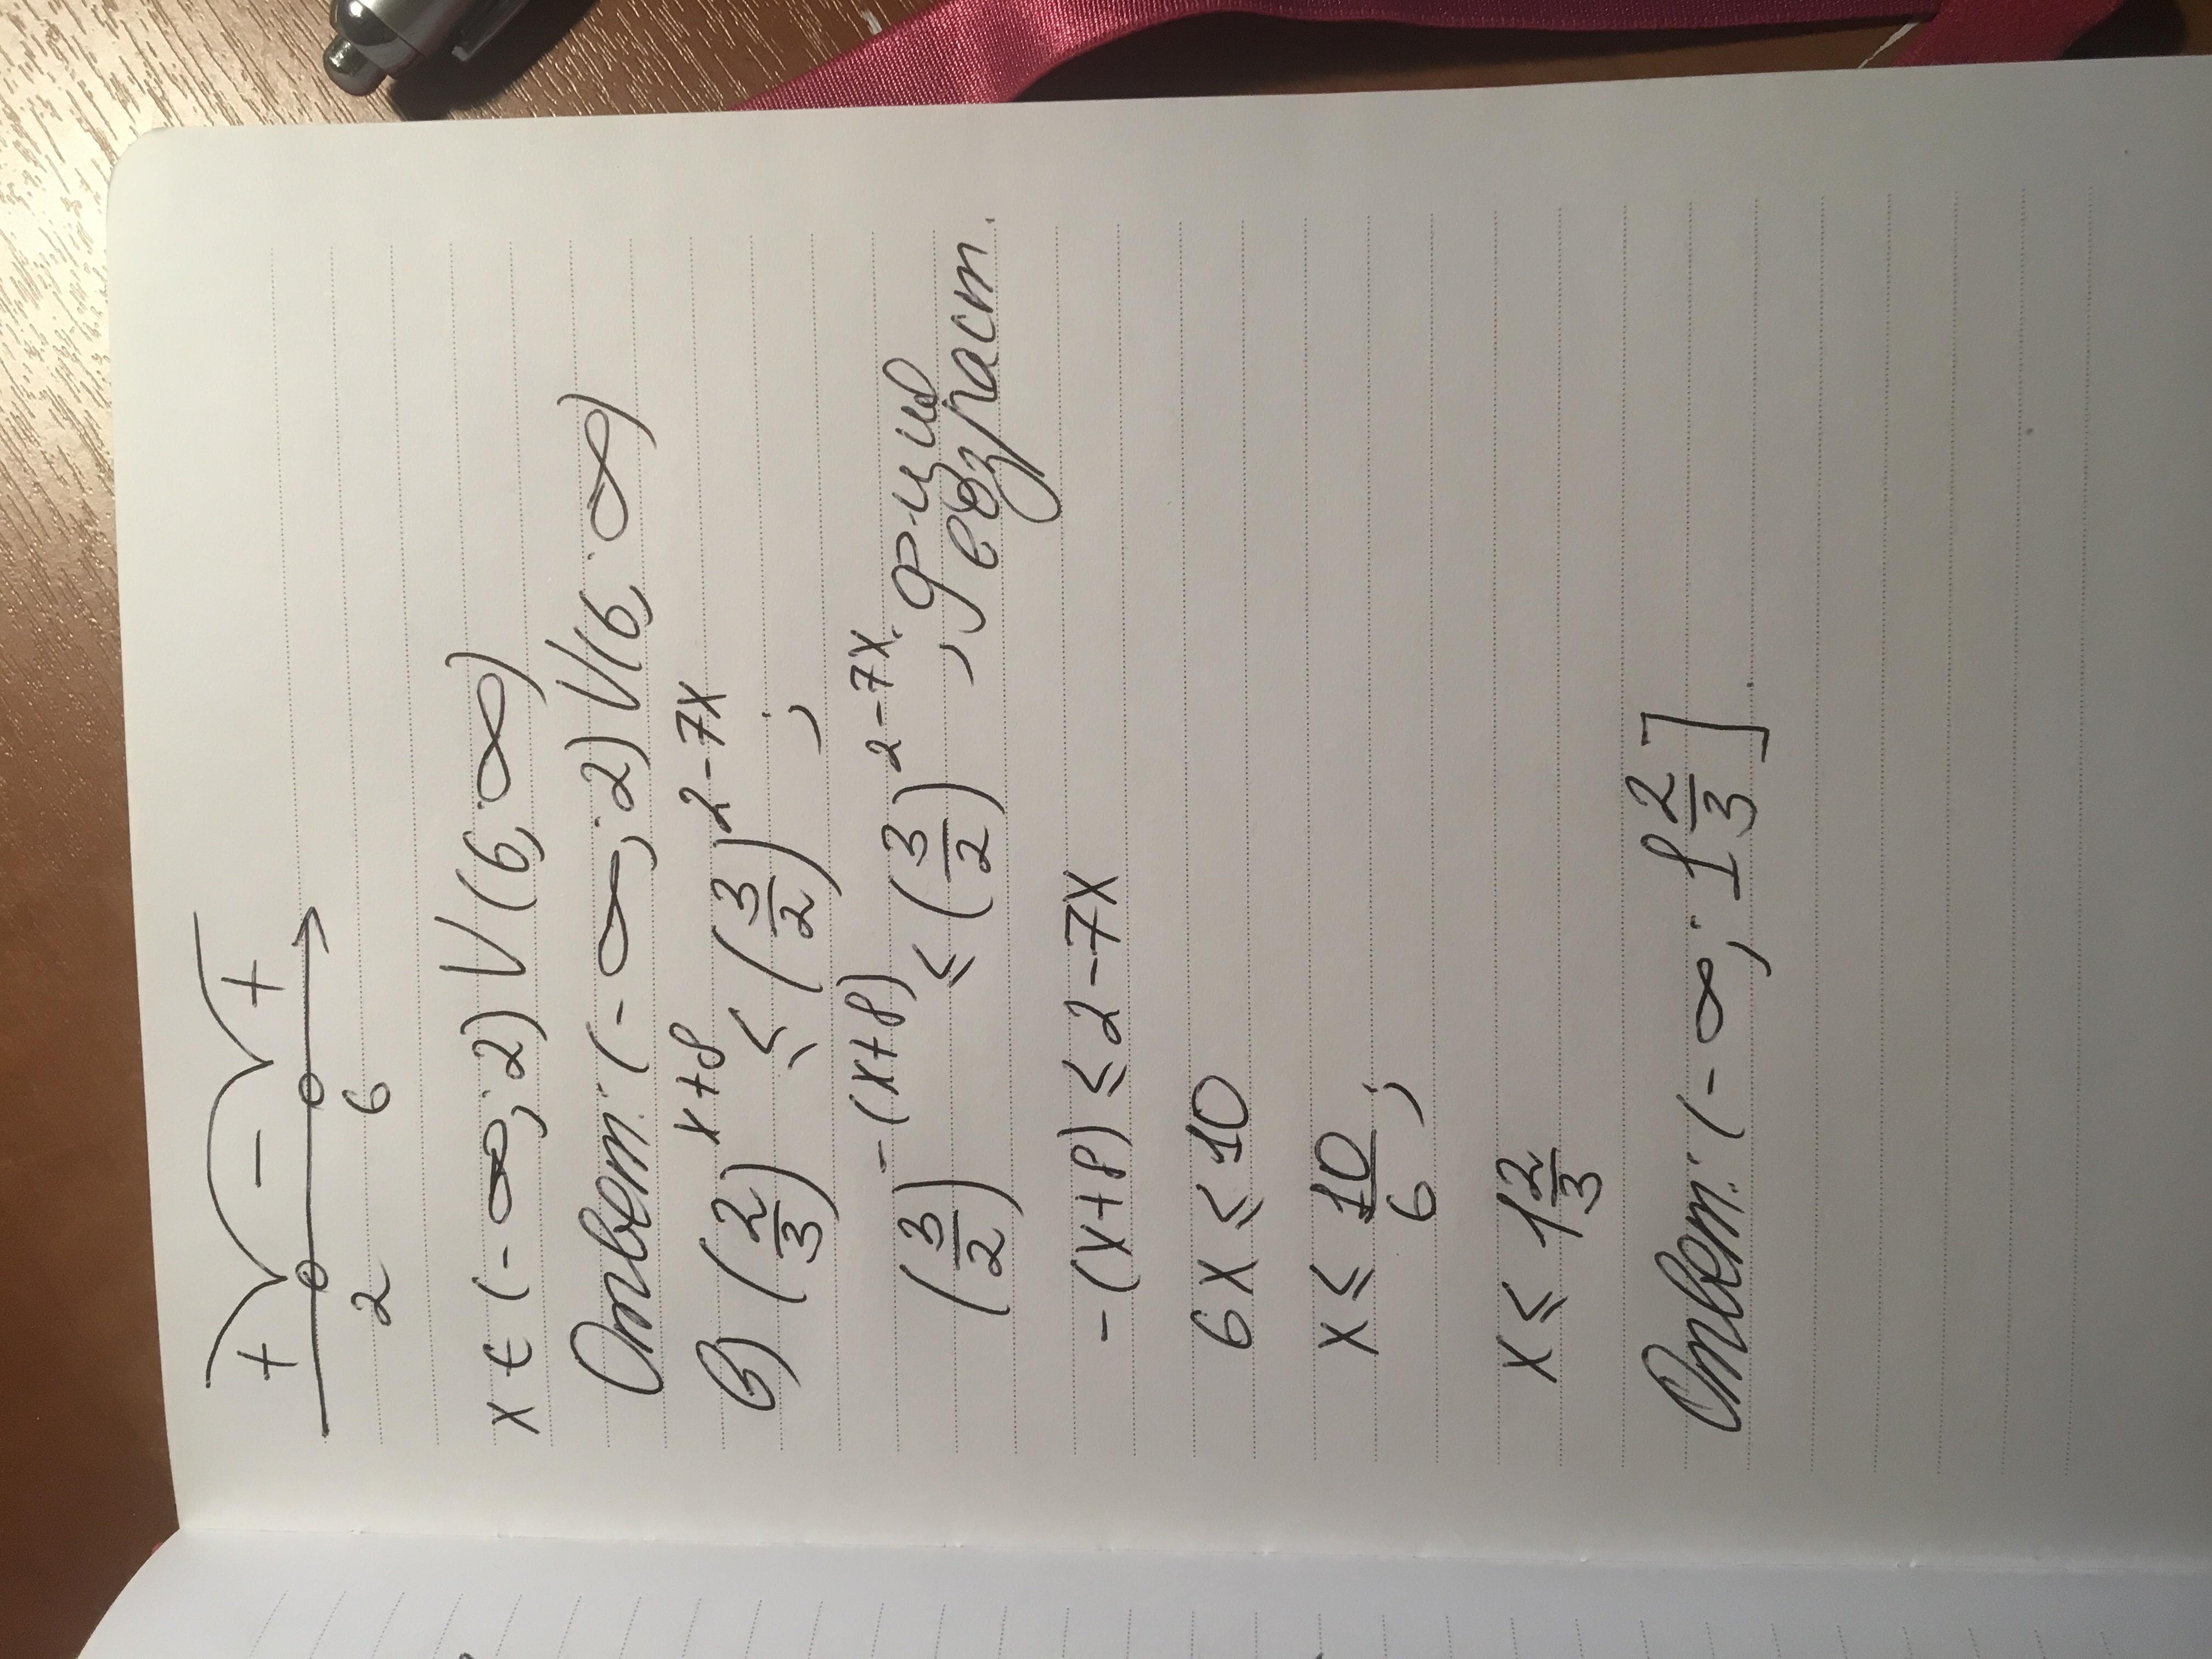 + − +
2 6
x ∈ (-∞; 2) V (6; ∞)
Ответ: (-∞; 2) V (6; ∞)
в) (2/3)^(x+8) ≤ (3/2)^(2-7x) ;
(3/2)^(-(x+8)) ≤ (3/2)^(2-7x) , ф-ция
возраст.
-(x+8) ≤ 2-7x
6x ≤ 10
x ≤ 10/6 ;
x ≤ 1 2/3
Ответ: (-∞; 1 2/3].